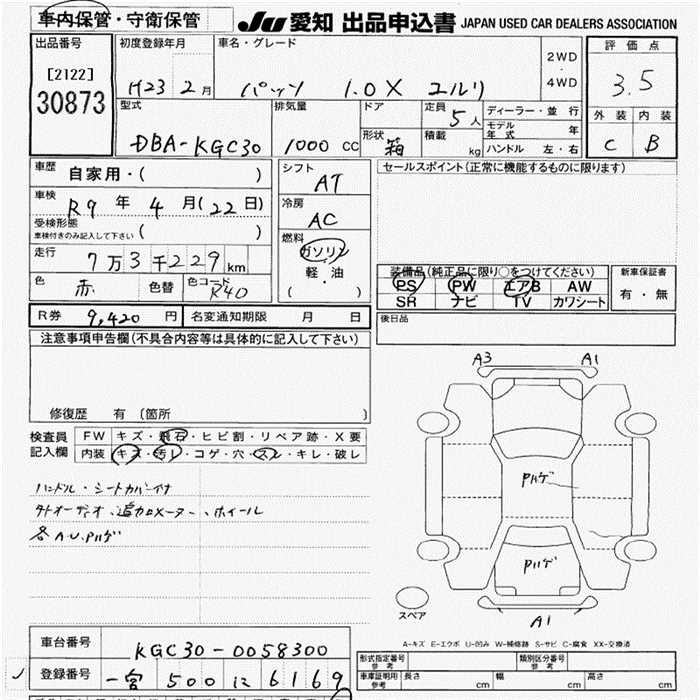 車内保管・守衛保管
JU 愛知 出品申込書 JAPAN USED CAR DEALERS ASSOCIATION
出品番号 初度登録年月 車名・グレード 2WD ・ 4WD 評価点
[2122]
30873
H23 2月 パッソ 1.0X ユルリ 3.5
型式 排気量 ドア 定員 5人 ディーラー・並行 外装 内装
モデル年式 年
DBA-KGC30 1000 CC 形状 箱 積載 kg ハンドル 左・右 C B
車歴 自家用・( ) シフト AT セールスポイント(正常に機能するものに限ります)
車検 R9 年 4 月(22日) 冷房 AC
受検形態
車検付きのみ記入して下さい ( )
燃料 ガソリン
軽・油
( )
走行 7万3千229km
装備品(純正品に限り○をつけてください) 新車保証書
PS PW エアB AW 有・無
SR ナビ TV カワシート
色 赤 色替 色コード R40
R券 9,420 円 名変通知期限 月 日 後日品
注意事項申告欄(不具合内容等は具体的に記入して下さい)
修復歴 有 (箇所 )
検査員 FW キズ・飛石・ヒビ割・リペア跡・X要
記入欄 内装 キズ・汚レ・コゲ・穴・スレ・キレ・破レ
ハンドル・シートカバー付
外オーディオ、追加メーター、ホイール
各A.U.Pハゲ
A3 A1
Pハゲ
Pハゲ
スペア
A1
A-キズ E-エクボ U-凹み W-補修跡 S-サビ C-腐食 XX-交換済
車台番号 KGC30-0058300
登録番号 一宮 500 に 6169
形式指定番号 参考 類別区分番号 参考
車庫証明用 参考 長さ cm 幅 cm 高さ cm